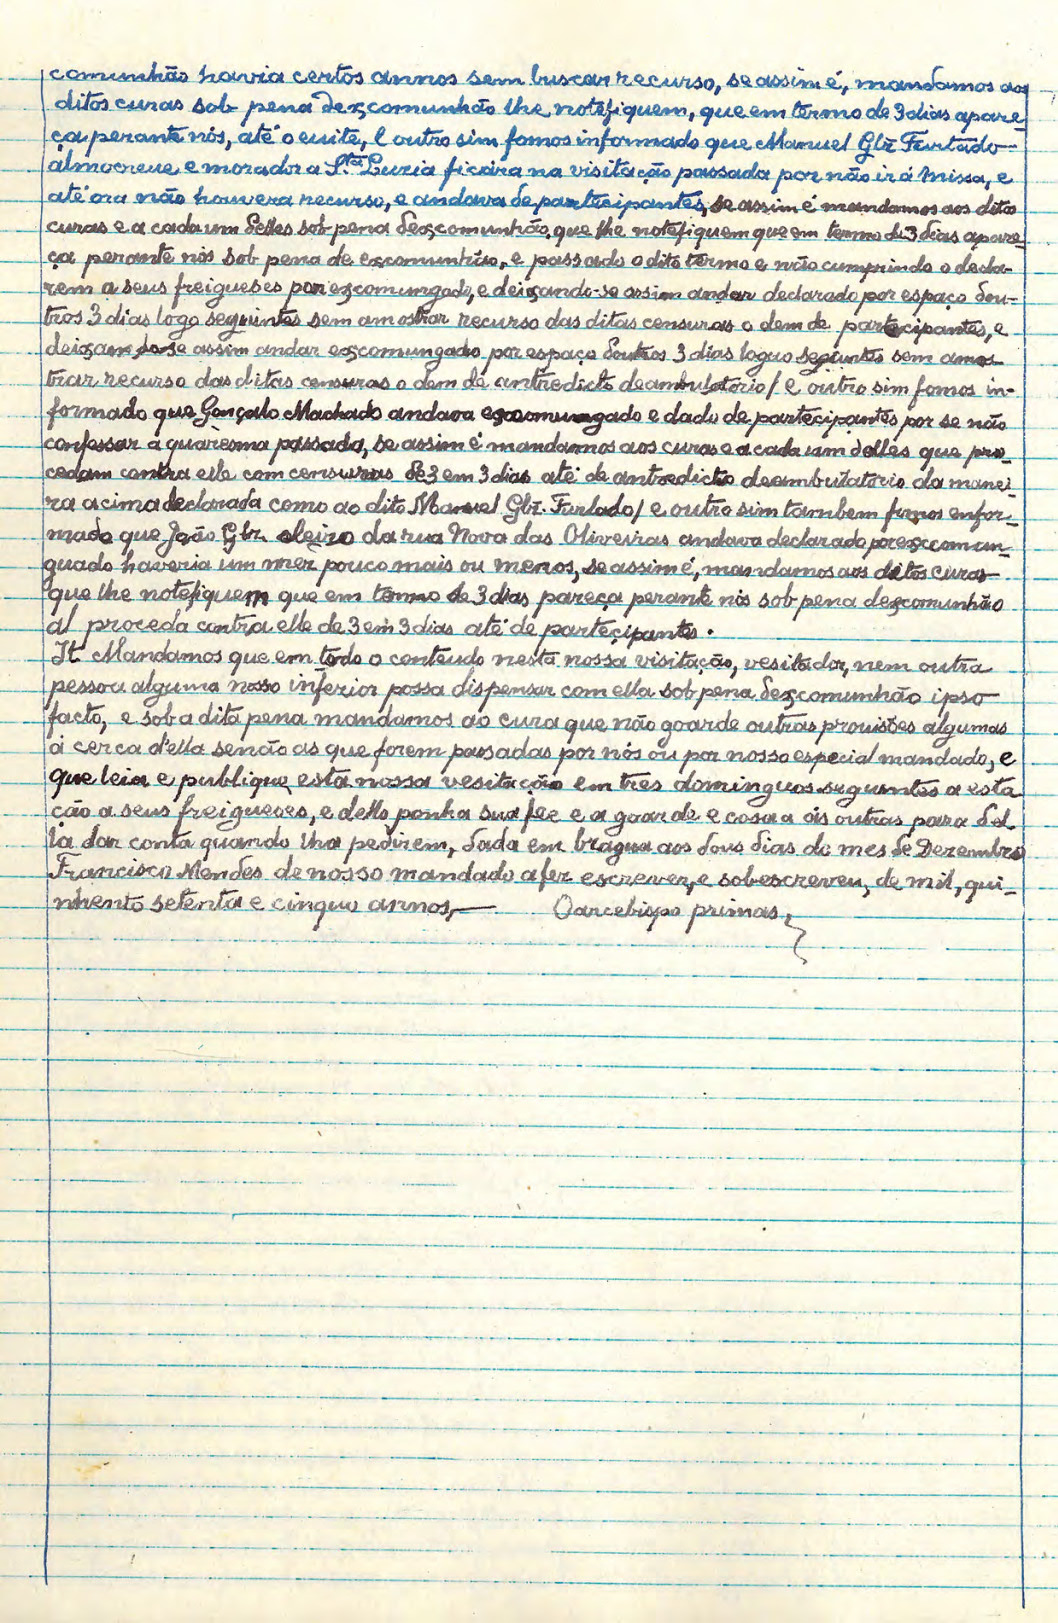 comunhão havia certos annos sem buscar recurso, se assim é, mandamos aos
ditos curas sob pena dexcomunhão lhe notefiquem, que em termo de 3 dias apare-
ça perante nós, até o euite, e outro sim fomos informado que Manuel Glz Furtado
almocreue e morador a S.ta Luzia ficára na visitação passada por não ir á missa, e
até ora não houvera recurso, e andava de partecipantes, se assim é mandamos aos ditos
curas e a cada um delles sob pena dexcomunhão, que lhe notefiquem que em termo de 3 dias apare-
ça perante nós sob pena de excomunhão, e passado o dito termo e não cumprindo o decla-
rem a seus freigueses por excomungado, e deixando-se assim andar declarado por espaço dou-
tros 3 dias logo seguintes sem amostrar recurso das ditas censuras o dem de partecipantes, e
deixando-se assim andar excomungado por espaço doutros 3 dias loguo seguintes sem amos-
trar recurso das ditas censuras o dem de antredicto deambulotorio / e outro sim fomos in-
formado que Gonçalo Machado andava excomungado e dado de partecipantes por se não
confessar a quaresma passada, se assim é mandamos aos curas e a cada um delles que pro-
cedam contra elle com censuras de 3 em 3 dias até de antredicto deambulatorio da manei-
ra acima declarada como ao dito Manuel Glz. Furtado / e outro sim tambem fomos enfor-
mado que João Glz. oleiro da rua Nova das Oliveiras andava declarado por excomun-
guado haveria um mez pouco mais ou menos, se assim é, mandamos aos ditos curas
que lhe notefiquem que em termo de 3 dias pareça perante nós sob pena dexcomunhão
al proceda contra elle de 3 em 3 dias até de partecipantes.
It Mandamos que em todo o conteudo nesta nossa visitação, vesitador, nem outra
pessoa alguma nosso inferior possa dispensar com ella sob pena dexcomunhão ipso
facto, e sob a dita pena mandamos ao cura que não goarde outras prouisões algumas
á cerca d'ella senão as que forem passadas por nós ou por nosso especial mandado, e
que leia e publique esta nossa vesitação em tres domingos seguentes a esta
ção a seus freigueses, e dello ponha sua fee e a goarde e cosa a ás outras para del
la dar conta quando lha pedirem, dada em bragua aos dous dias do mes de Dezembro
Francisco Mendes de nosso mandado a fez escrever, e sobescreveu, de mil, qui-
nhento setenta e cinquo annos, — O arcebispo primas,